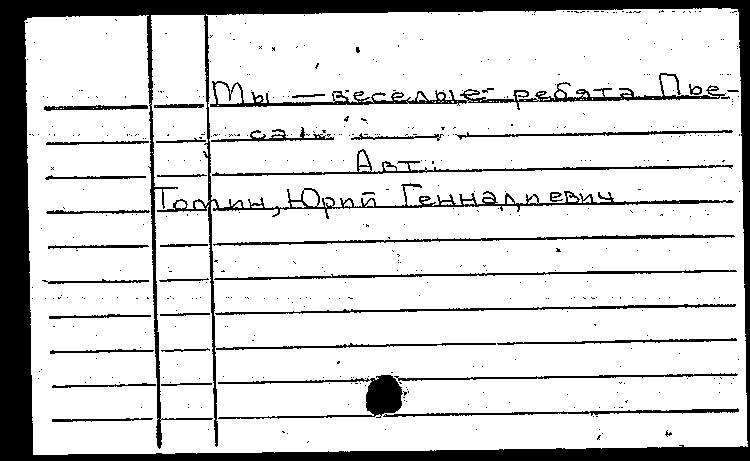 Мы — веселые ребята. Пье-
са.
Авт.:
Томин, Юрий Геннадиевич